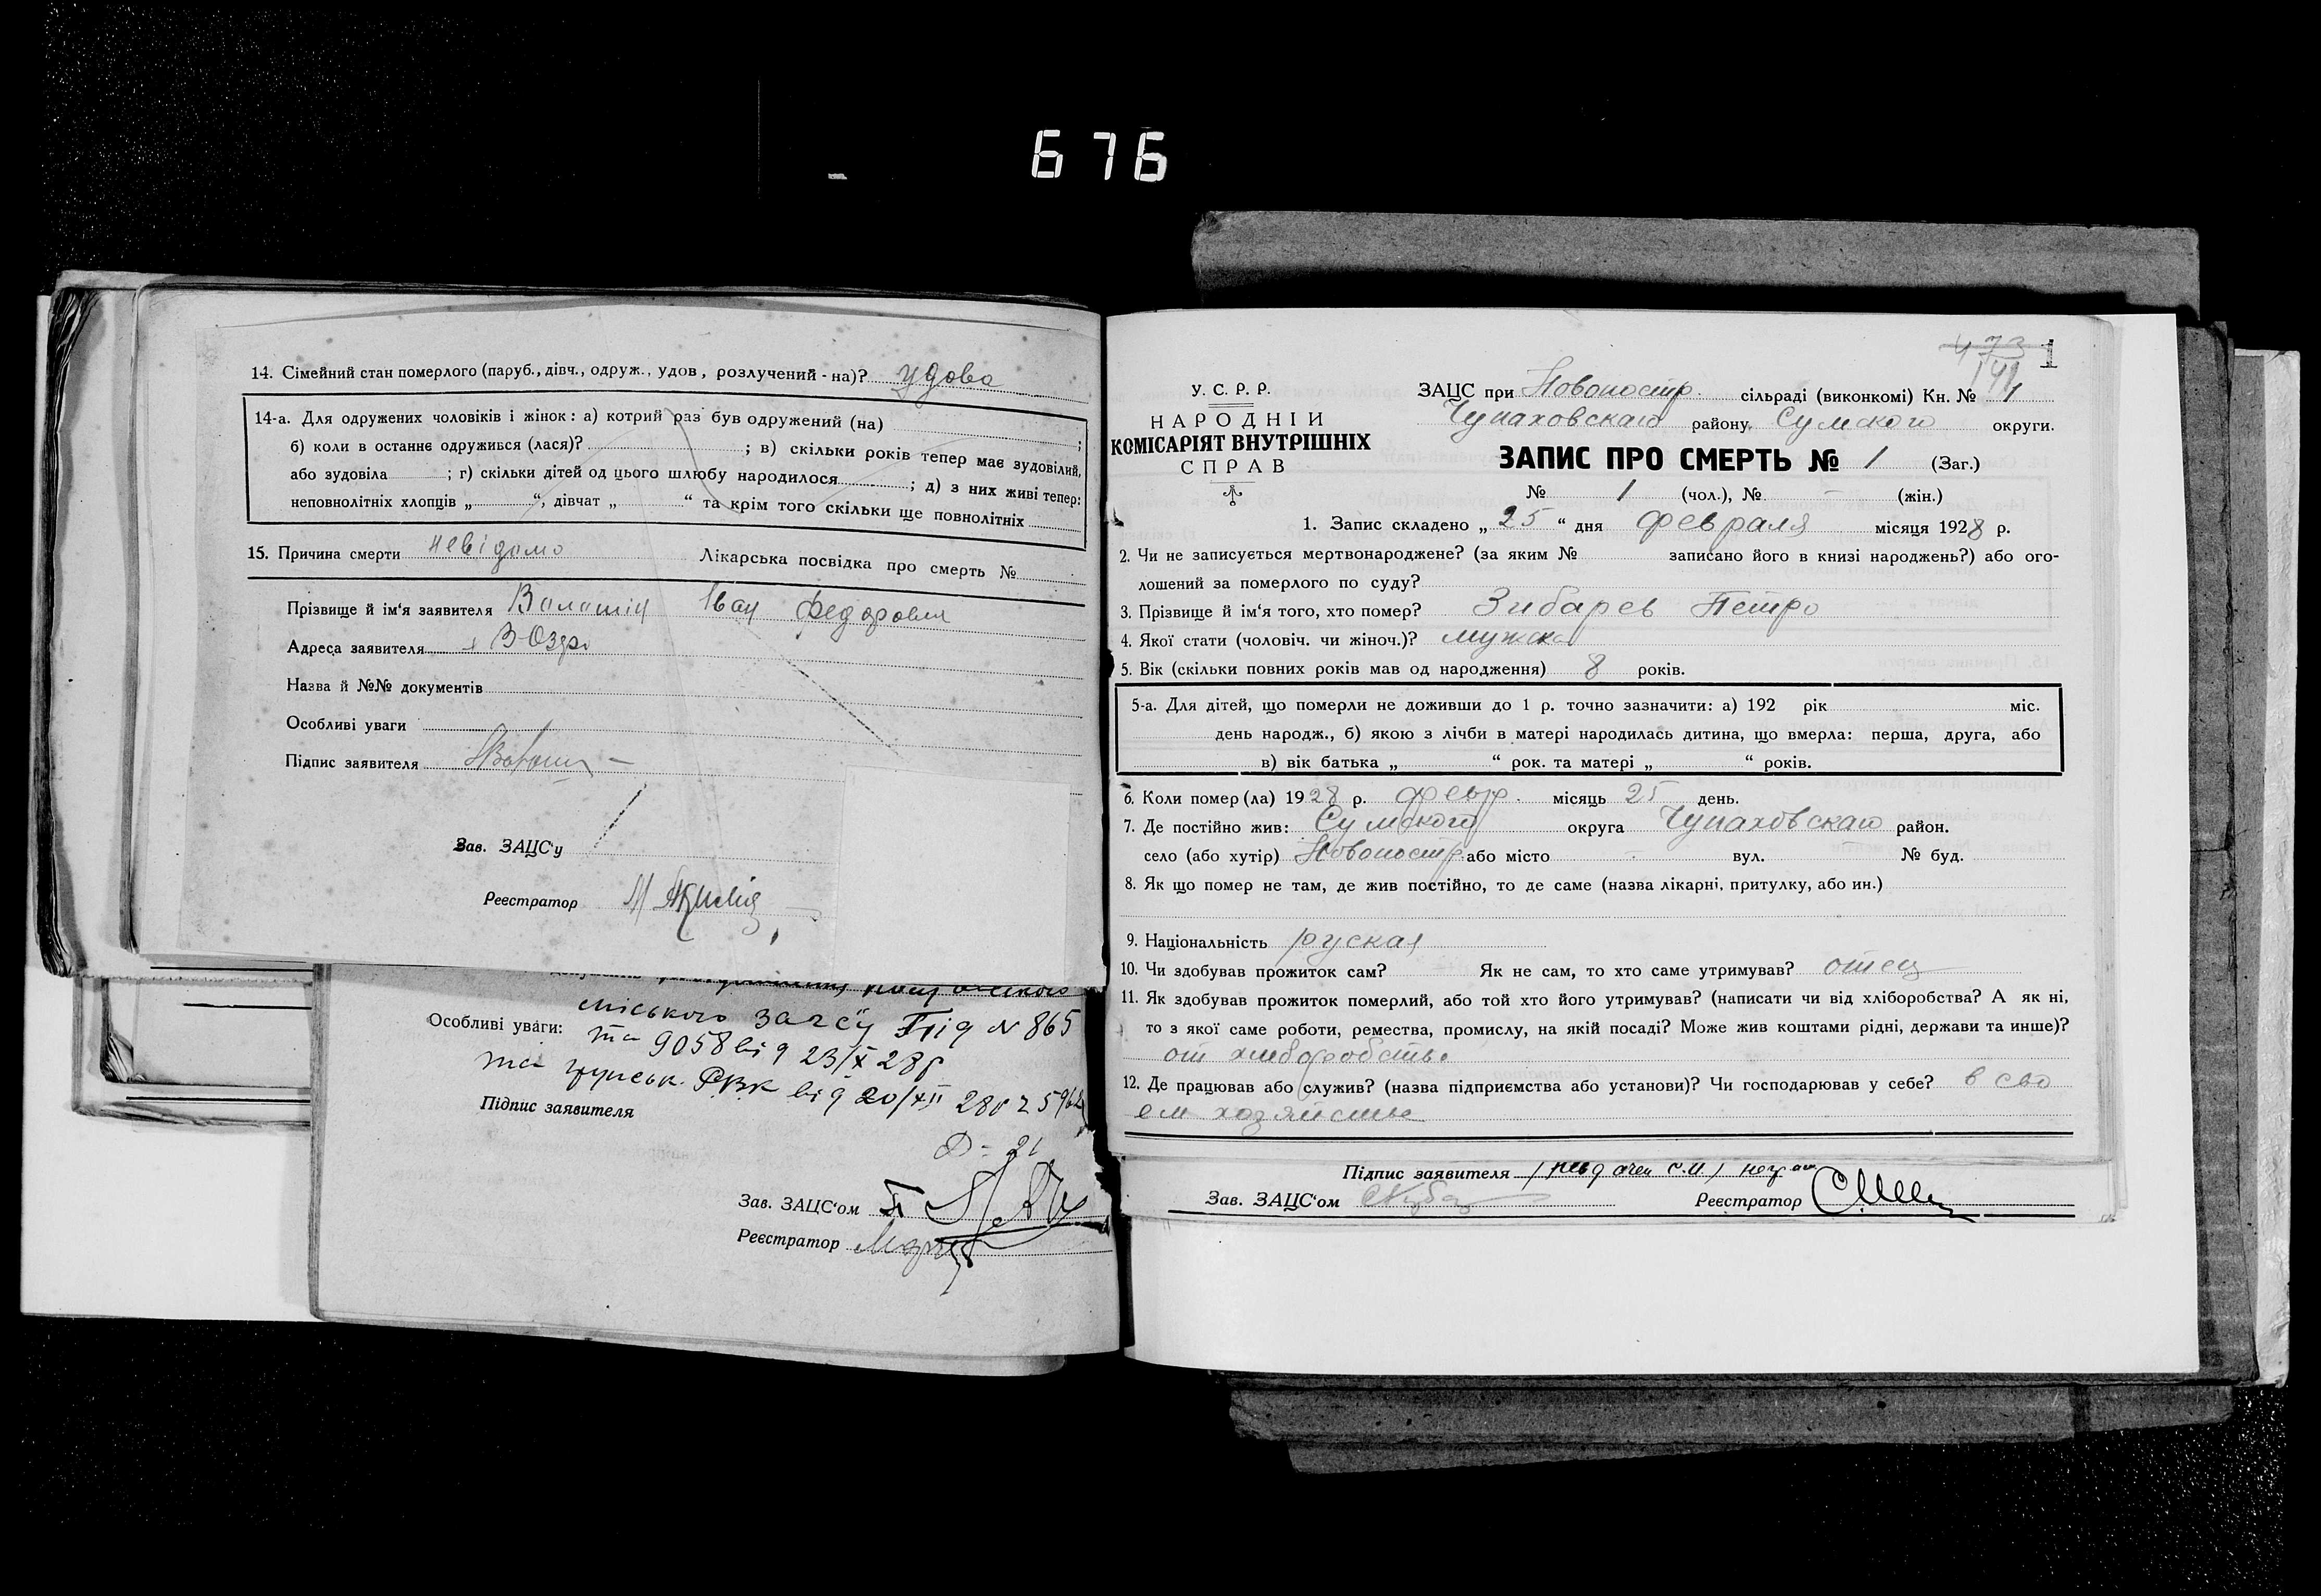 676
14. Сімейний стан померлого (паруб., дівч., одруж., удов, розлучений-на)? удова
14-а. Для одружених чоловіків і жінок: а) котрий раз був одружений (на) ;
б) коли в останнє одружився (лася)? ; в) скільки років тепер має зудовілий,
або зудовіла ; г) скільки дітей од цього шлюбу народилося ; д) з них живі тепер:
неповнолітніх хлопців „ “, дівчат „ “ та крім того скільки ще повнолітніх
15. Причина смерти невідомо Лікарська посвідка про смерть №
Прізвище й ім‘я заявителя Іван Федорович
Адреса заявителя
Назва й №№ документів
Особливі уваги
Підпис заявителя
Зав. ЗАЦС‘у
Реєстратор
міського
Особливі уваги: та 9058 від 23/X 28р
та від 20/XII
Підпис заявителя
Зав. ЗАЦС‘ом
Реєстратор
473
1
У. С. Р. Р.
НАРОДНІЙ
КОМІСАРІЯТ ВНУТРІШНІХ
СПРАВ
ЗАЦС при Новопостр. сільраді (виконкомі) Кн. № 1
Чупаховскаго району, Сумского округи.
ЗАПИС ПРО СМЕРТЬ № 1 (Заг.)
№ 1 (чол.), № – (жін.)
1. Запис складено „ 25 “ дня февраля місяця 1928 р.
2. Чи не записується мертвонароджене? (за яким № записано його в книзі народжень?) або ого-
лошений за померлого по суду?
3. Прізвище й ім‘я того, хто помер? Зибарев Петро
4. Якої стати (чоловіч. чи жіноч.)? мужска
5. Вік (скільки повних років мав од народження) 8 років.
5-а. Для дітей, що померли не доживши до 1 р. точно зазначити: а) 192 рік міс.
день народж., б) якою з лічби в матері народилась дитина, що вмерла: перша, друга, або
в) вік батька „ “ рок. та матері „ “ років.
6. Коли помер (ла) 1928 р. февр. місяць 25 день.
7. Де постійно жив: Сумского округа Чупаховскаго район.
село (або хутір) Новопостр. або місто – вул. № буд.
8. Як що помер не там, де жив постійно, то де саме (назва лікарні, притулку, або ин.)
9. Національність руская
10. Чи здобував прожиток сам? Як не сам, то хто саме утримував? отец
11. Як здобував прожиток померлий, або той хто його утримував? (написати чи від хліборобства? А як ні,
то з якої саме роботи, ремества, промислу, на якій посаді? Може жив коштами рідні, держави та инше)?
от
12. Де працював або служив? (назва підприємства або установи)? Чи господарював у себе? в сво
ем хозяйстве
Підпис заявителя
Зав. ЗАЦС‘ом Реєстратор